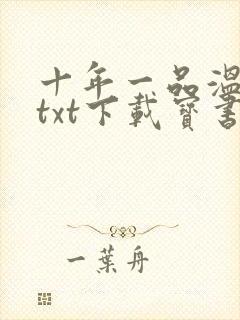 十年一品温
txt下載寶書
一葉舟